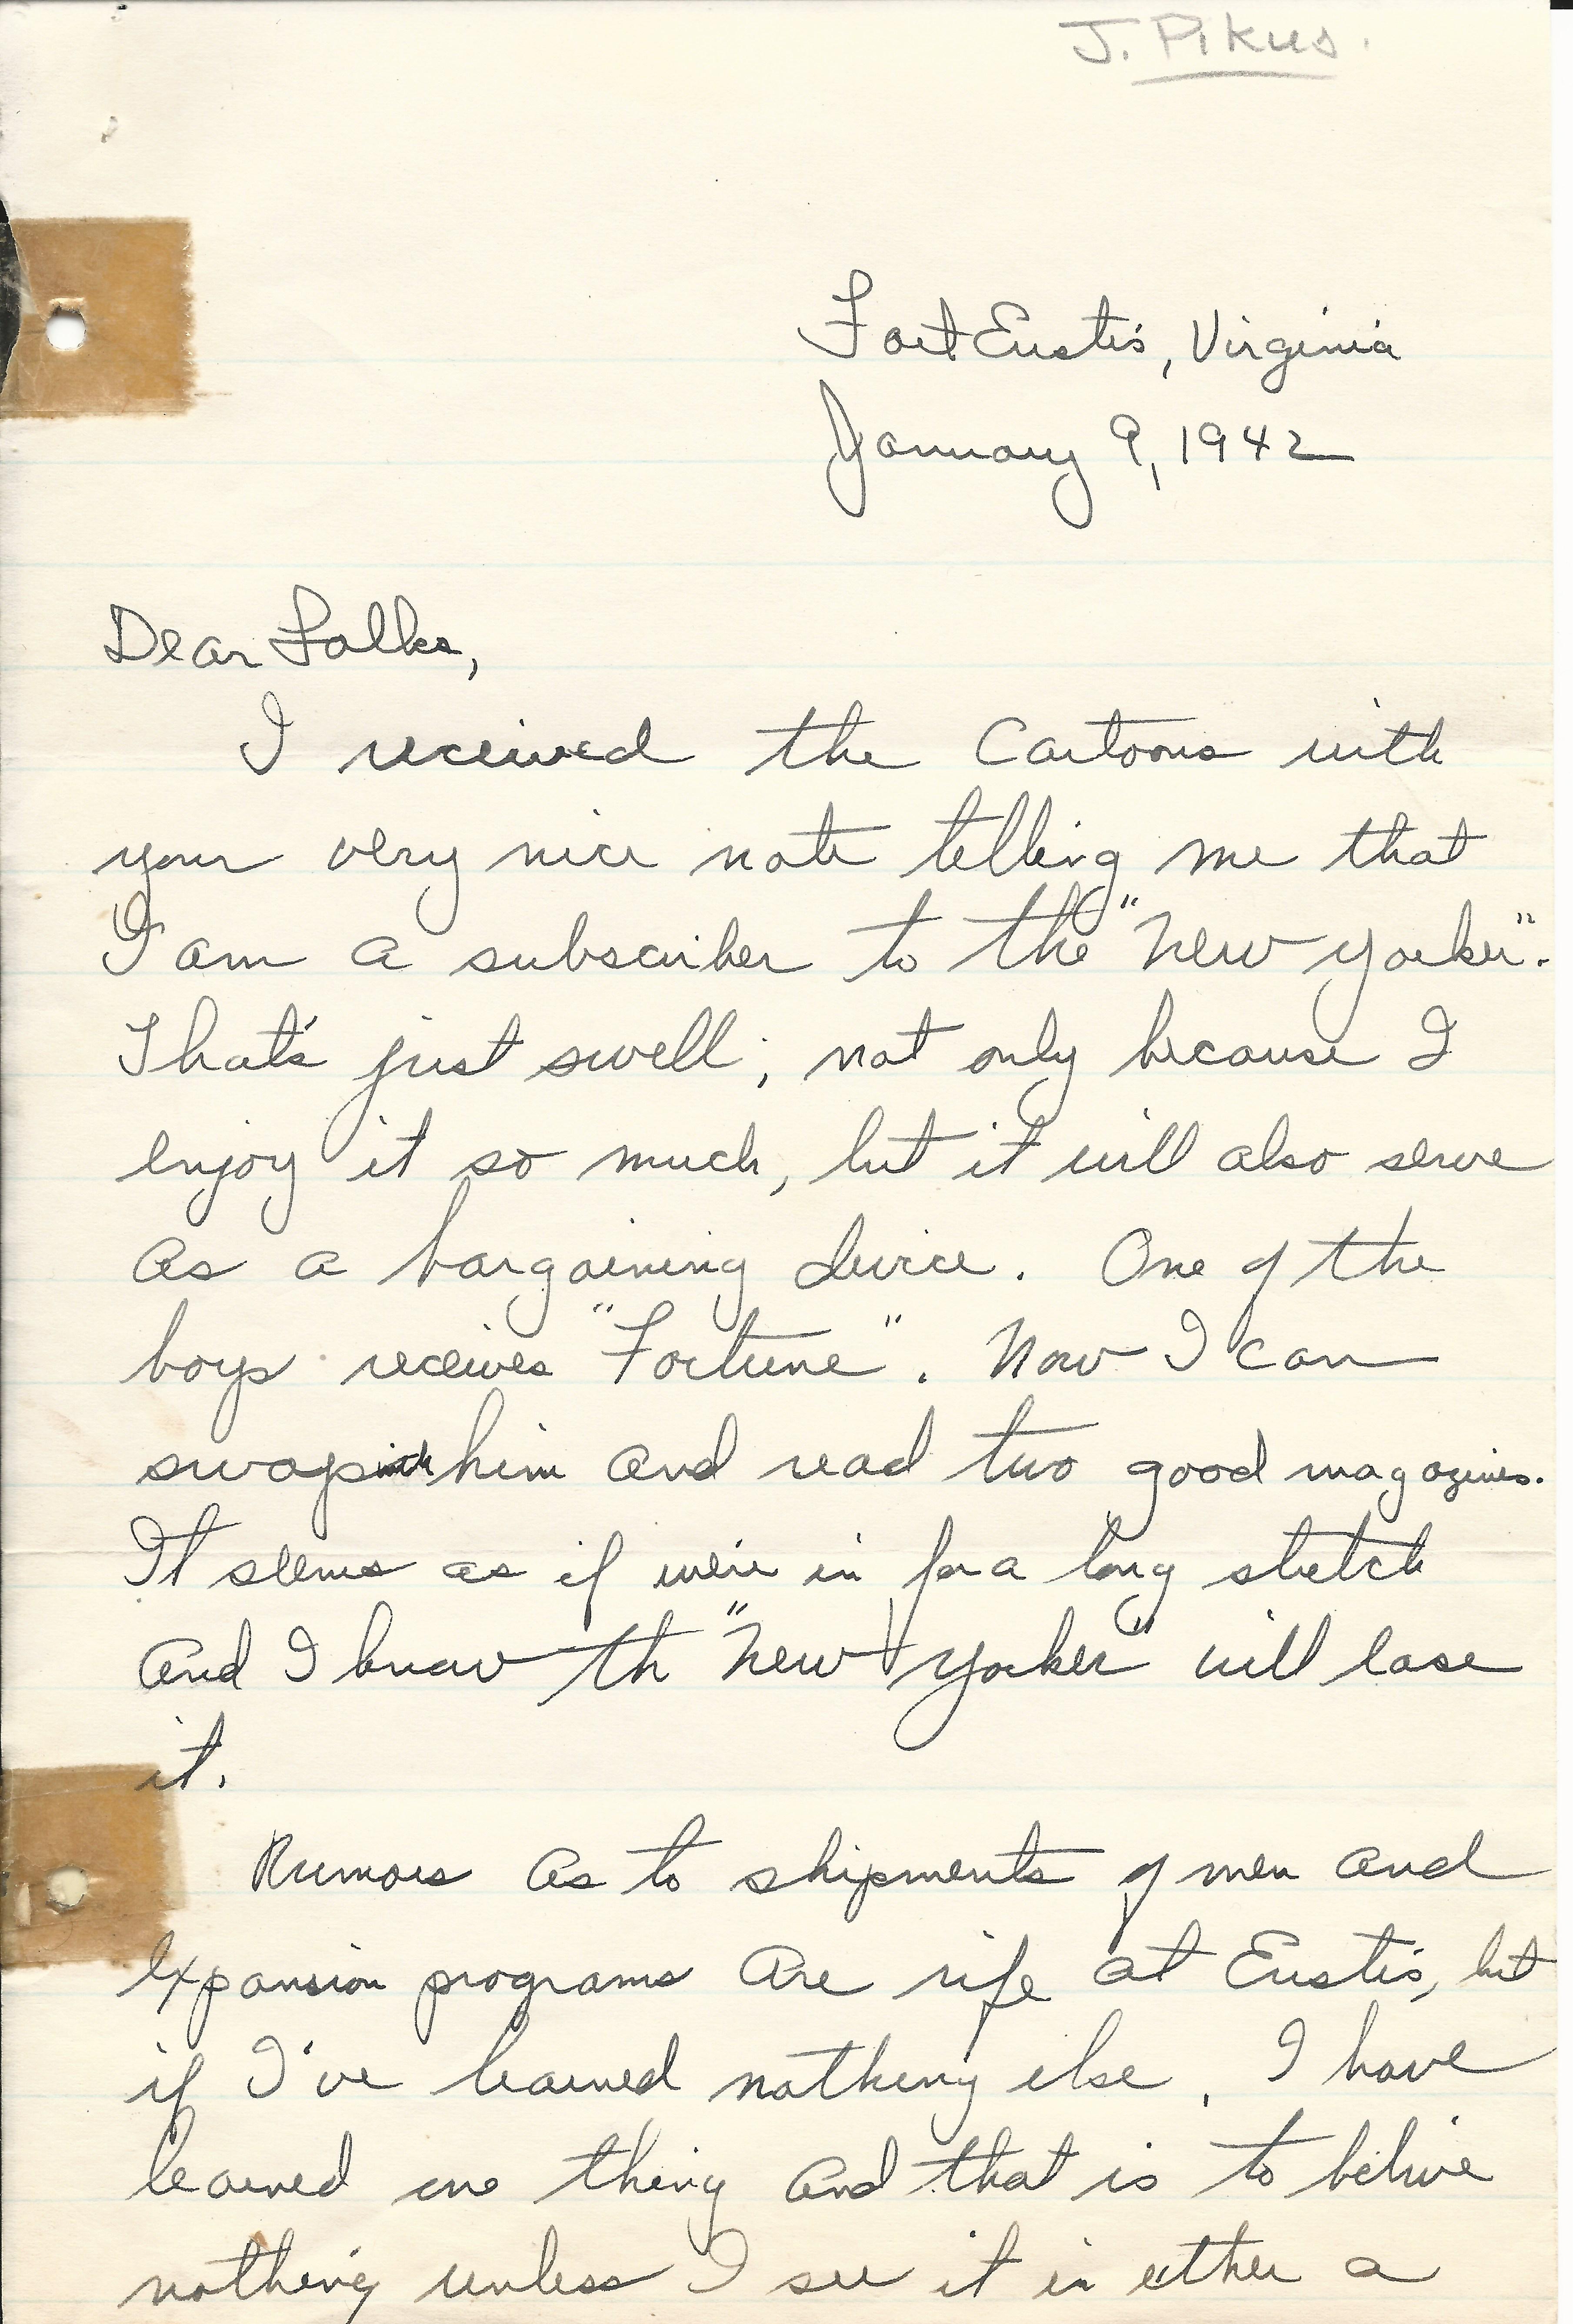 J. Pikus.
Fort Eustis, Virginia
January 9, 1942
Dear Folks,
I received the Cartoons with
your very nice note telling me that
I am a subscriber to the "New Yorker".
That's just swell; not only because I
enjoy it so much, but it will also serve
as a bargaining device. One of the
boys receives "Fortune". Now I can
swap with him and read two good magazines.
It seems as if we're in for a long stretch
and I know th "New Yorker" will ease
it.
Rumors as to shipments of men and
expansion programs are rife at Eustis, but
if I've learned nothing else, I have
learned one thing and that is to believe
nothing unless I see it in either a